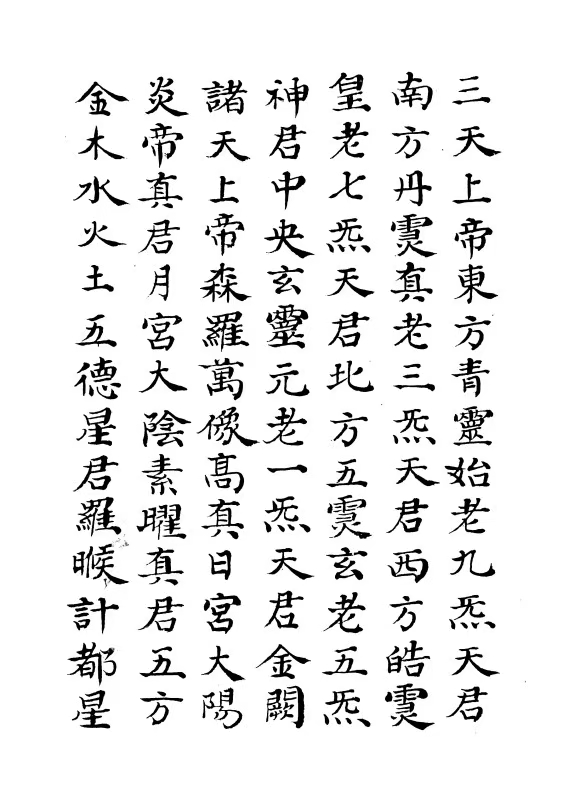 三天上帝東方青靈始老九炁天君
南方丹靈真老三炁天君西方皓靈
皇老七炁天君北方五靈玄老五炁
神君中央玄靈元老一炁天君金闕
諸天上帝森羅萬像髙真日宮大陽
炎帝真君月宮大陰素曜真君五方
金木水火土五德星君羅睺計都星